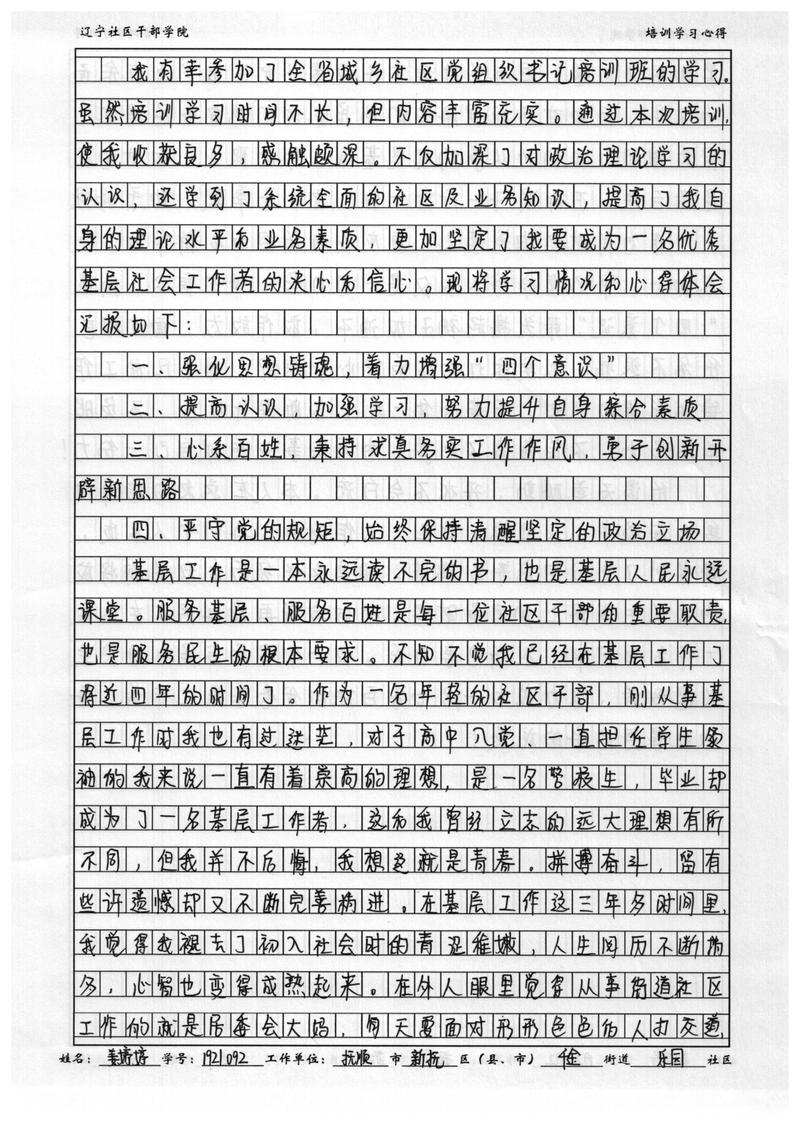 辽宁社区干部学院 培训学习心得
我有幸参加了全省城乡社区党组织书记培训班的学习。
虽然培训学习时间不长，但内容丰富充实。通过本次培训，
使我收获良多，感触颇深。不仅加深了对政治理论学习的
认识，还学到了系统全面的社区及业务知识，提高了我自
身的理论水平和业务素质，更加坚定了我要成为一名优秀
基层社会工作者的决心和信心。现将学习情况和心得体会
汇报如下：
一、强化思想铸魂，着力增强“四个意识”
二、提高认识，加强学习，努力提升自身综合素质
三、心系百姓，秉持求真务实工作作风，勇于创新开
辟新思路
四、严守党的规矩，始终保持清醒坚定的政治立场
基层工作是一本永远读不完的书，也是基层人民永远
课堂。服务基层，服务百姓是每一位社区干部的重要职责，
也是服务民生的根本要求。不知不觉我已经在基层工作了
将近四年的时间了。作为一名年轻的社区干部，刚从事基
层工作时我也有过迷茫，对于高中入党，一直担任学生领
袖的我来说一直有着崇高的理想，是一名警校生，毕业却
成为了一名基层工作者，这和我曾经立志的远大理想有所
不同，但我并不后悔，我想这就是青春。拼搏奋斗，留有
些许遗憾却又不断完善前进。在基层工作这三年多时间里，
我觉得我褪去了初入社会时的青涩稚嫩，人生阅历不断增
多，心智也变得成熟起来。在外人眼里觉得从事街道社区
工作的就是居委会大妈，每天要面对形形色色的人打交道，
姓名： 姜婷婷 学号：1921092 工作单位： 抚顺 市 新抚 区（县、市） 街道 乐园 社区